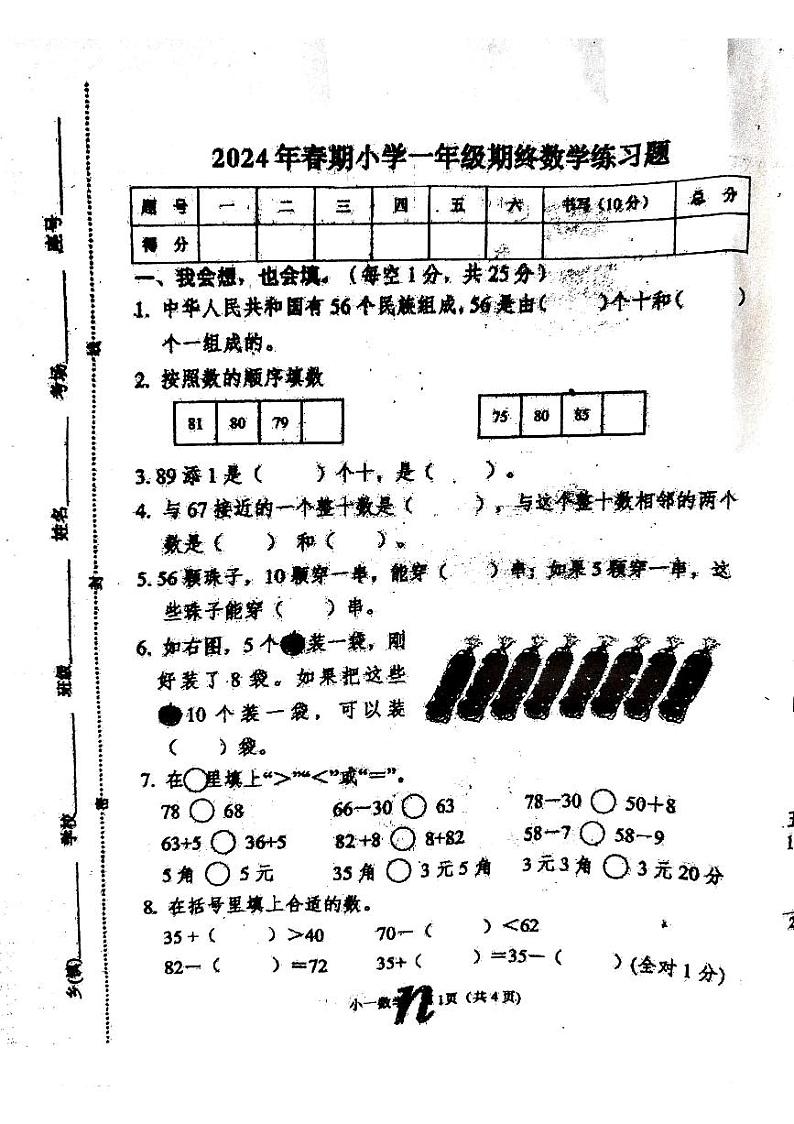 2024年春期小学一年级期终数学练习题
题 号 一 二 三 四 五 六 书写(10分) 总 分
得 分
一、我会想,也会填。(每空1分,共25分)
1. 中华人民共和国有56个民族组成,56是由( )个十和( )
个一组成的。
2. 按照数的顺序填数
81 80 79
75 80 85
3. 89添1是( )个十,是( )。
4. 与67接近的一个整十数是( ),与这个整十数相邻的两个
数是( ) 和( )。
5. 56颗珠子,10颗穿一串,能穿( )串;如果5颗穿一串,这
些珠子能穿( )串。
6. 如右图,5个装一袋,刚
好装了8袋。如果把这些
10个装一袋,可以装
( )袋。
7. 在○里填上“>”“<”或“=”。
78○68 66-30○63 78-30○50+8
63+5○36+5 82+8○8+82 58-7○58-9
5角○5元 35角○3元5角 3元3角○3元20分
8. 在括号里填上合适的数。
35+( )>40 70-( )<62
82-( )=72 35+( )=35-( )(全对1分)
小一数学 1页(共4页)
座号
考场
姓名
班级
学校
乡(镇)
线
封
密